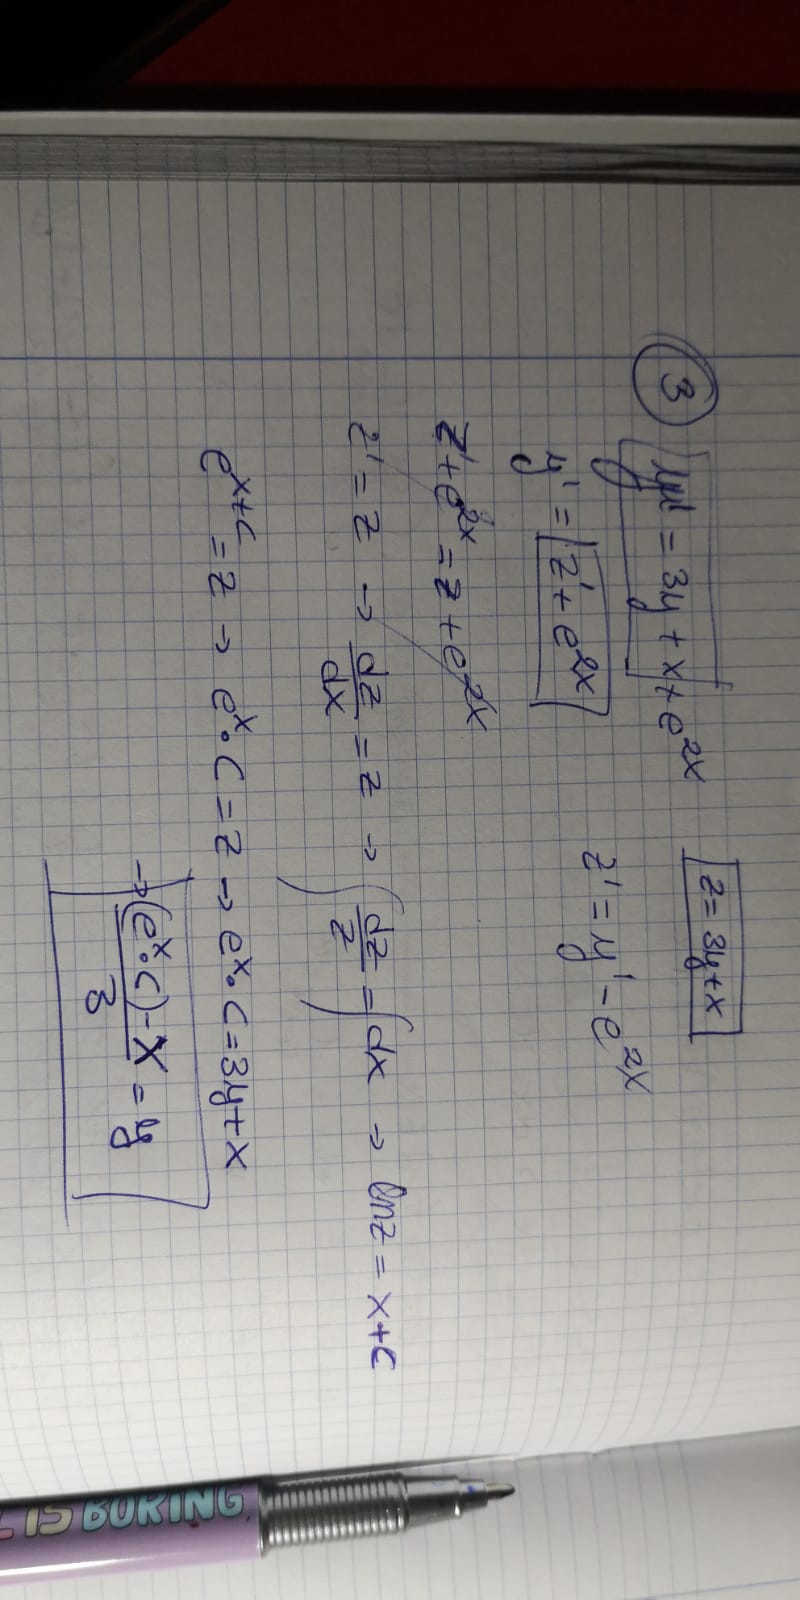 ③ y' = 3y + x + e^2x   z = 3y + x
z' = y' - e^2x
y' = z' + e^2x
z' + e^2x = z + e^2x
z' = z → dz/dx = z → ∫ dz/z = ∫ dx → ln z = x + c
e^x+c = z → e^x · C = z → e^x · C = 3y + x
→ (e^x · C) - x / 3 = y
IS BORING